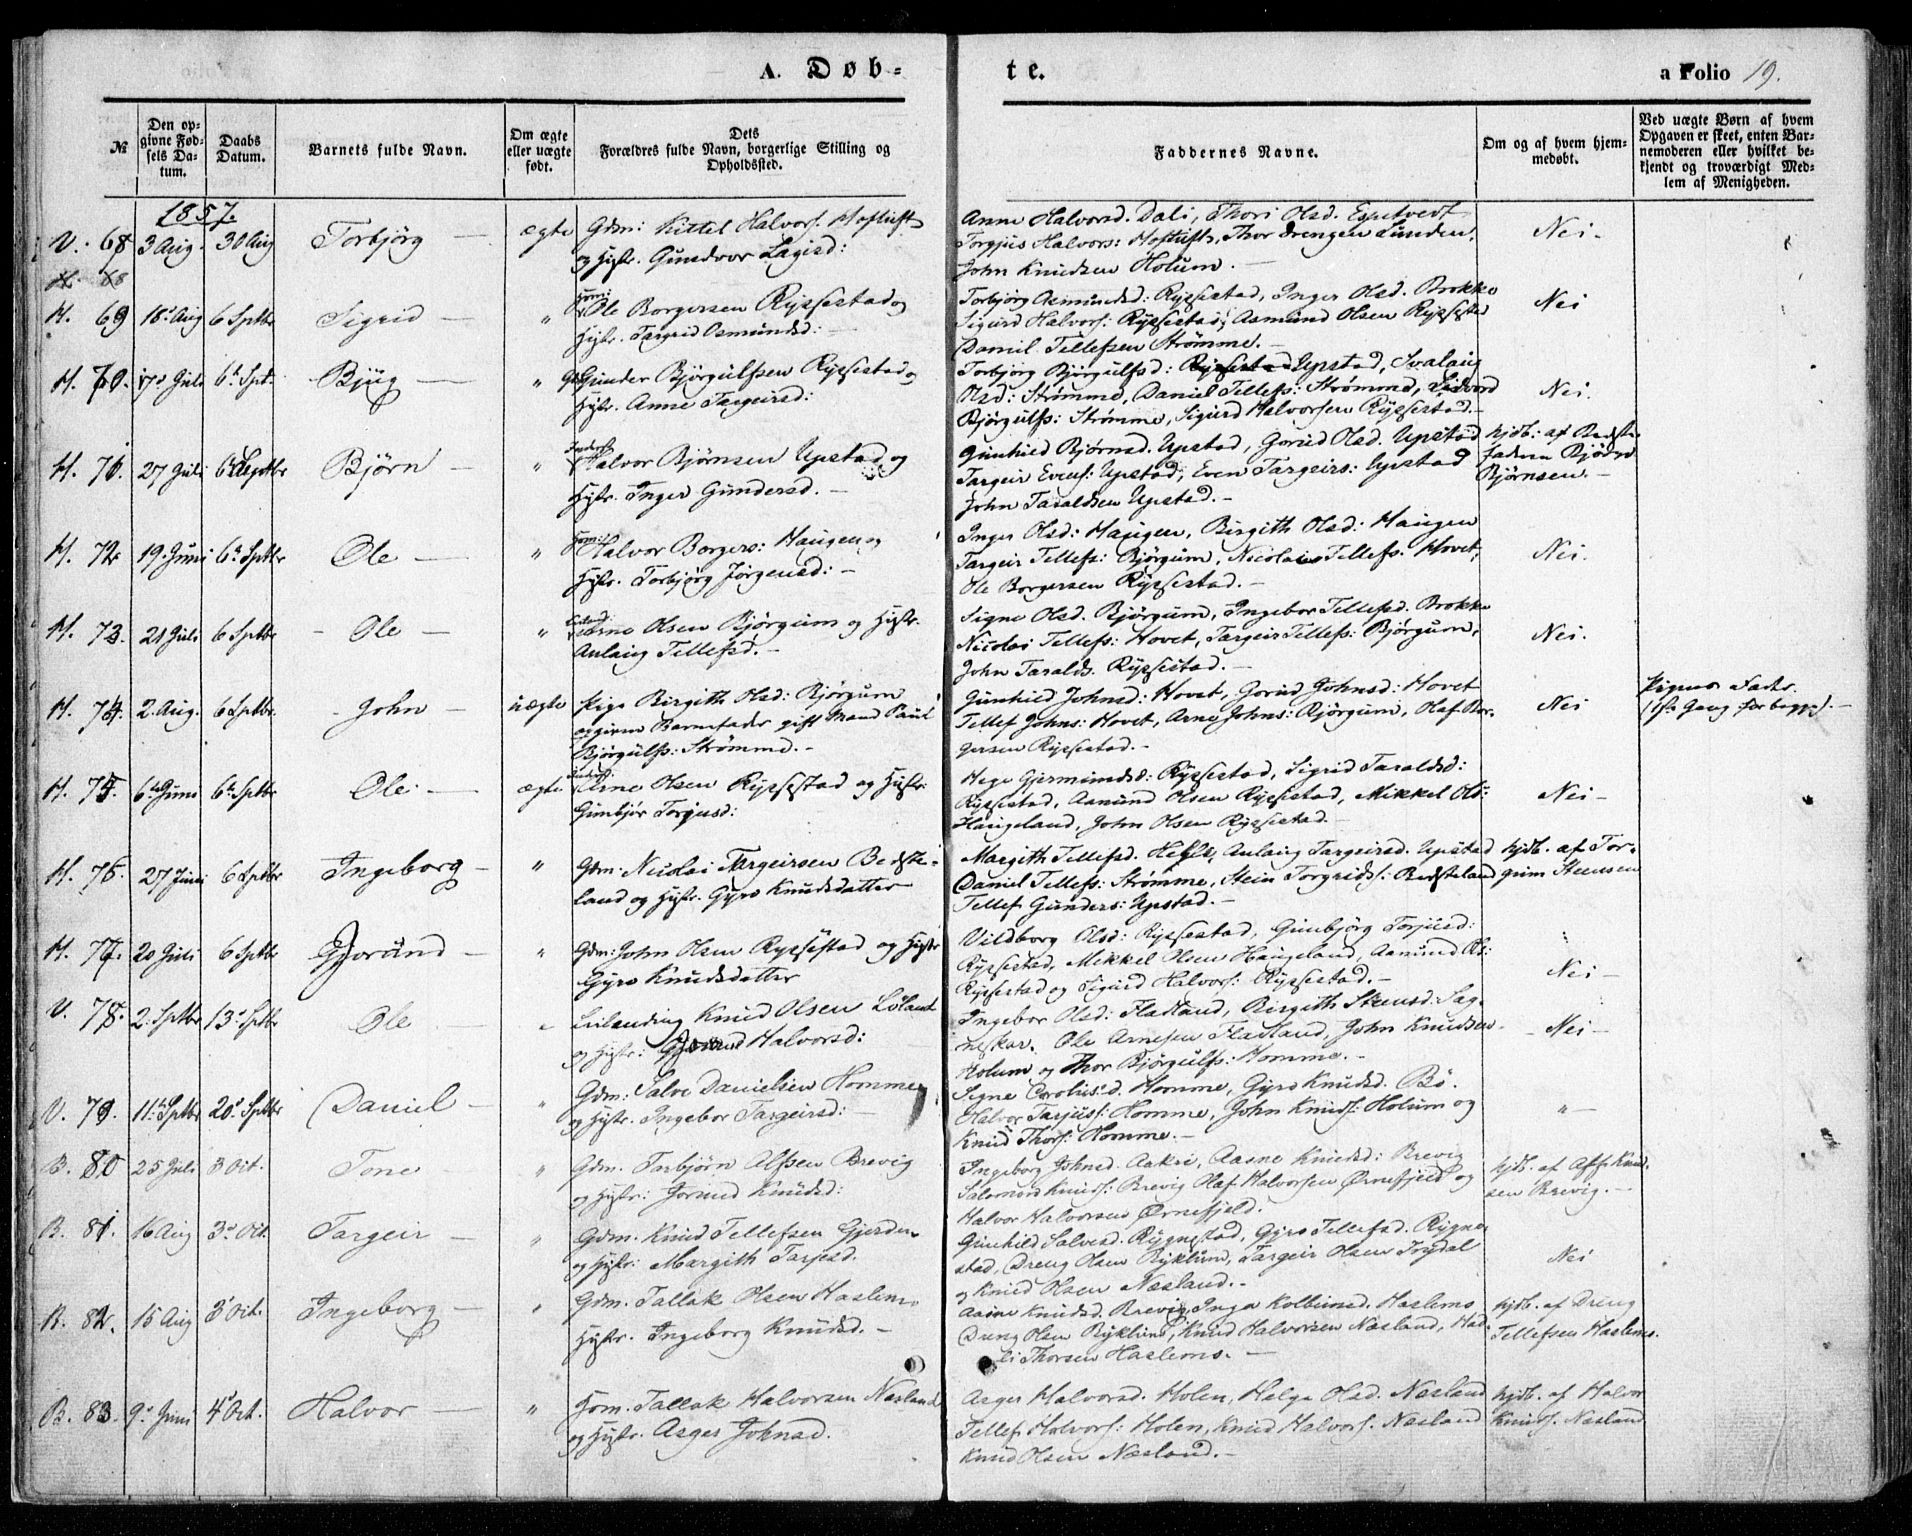 A. Døb-
te.
a Folio 19.
№
Den op-
givne Fød-
sels Da-
tum.
Daabs
Datum.
Barnets fulde Navn.
Om ægte
eller uægte
født.
Dets
Forældres fulde Navn, borgerlige Stilling og
Opholdssted.
Faddernes Navne.
Om og af hvem hjem-
medøbt.
Ved uægte Børn af hvem
Opgaven er skeet, enten Bar-
nemoderen eller hvilket be-
kjendt og troværdigt Med-
lem af Menigheden.
1857.
V. 68 3 Aug. 30 Aug Torbjørg — ægte Gdm: Kittel Halvors. Hoftuft
og Hustr. Gundvor Lagisd:
Anne Halvorsd. Dali, Thori Olsd. Espetvedt
Torgjus Halvors: Hoftuft, Thor Drengen Lunden,
John Knudsen Holum. —
Nei —
H. 69 18' Aug 6 Sptbr Sigrid — " Huus: Ole Borgersen Rysestad og
Hustr. Targrid Osmundsd: —
Torbjørg Asmundsd: Rysestad, Inger Olsd. Brokke
Sigurd Halvors: Rysestad, Asmund Olsen Rysestad
Daniel Tellefsen Strømme. —
Nei
H. 70. 17' Juli 6' Spt. Bjüg — " Gunder Bjørgulfsen Rysestad og
Hustr. Anne Targeirsd:
Torbjørg Bjørgulfsd: Upstad, Svalaug
Olsd: Strømme, Daniel Tellefs: Strømme,
Bjørgulfs: Strømme, Sigurd Halvorsen Rysestad. —
Nei.
H. 71. 27 Juli 6' Septbr Bjørn — " Halvor Bjørnsen Upstad og
Hustr. Inger Gundersd. —
Gunhild Bjørnsd. Upstad, Gorud Olsd. Upstad
Targeir Evens: Upstad, Even Targeirs: Upstad
John Taraldsen Upstad. —
hjdb: af Bedste-
faderen
Bjørnsen. —
H. 72 19' Juni 6' Sptbr Ole — " Huus: Halvor Borgers: Haugen og
Hustr. Torbjørg Jørgensd: —
Inger Olsd: Haugen, Birgith Olsd: Haugen
Targeir Tellefs: Bjørgum, Nicolai Tellefs. Hovet,
Ole Borgersen Rysestad. —
Nei.
H. 73. 21 Juli 6 Sptbr - Ole — " Arne Olsen Bjørgum og Hustr.
Aulaug Tellefsd. —
Signe Olsd. Bjørgum, Ingebor Tellefsd. Brokke
Nicolai Tellefs: Hovet, Targeir Tellefs: Bjørgum,
John Taralds. Rysestad. —
Nei.
H. 74. 2. Aug. 6 Sptbr. - John — uægte Pige Birgith Olsd: Bjørgum
angiven Barnefader gift Mand Paul
Bjørgulfs: Strømme. —
Gunhild Johnsd: Hovet, Gorud Johnsd: Hovet
Tellef Johns: Hovet, Arne Johns: Bjørgum, Olaf Bor-
gersen Rysestad. —
Nei
Pigens Fader.
(1ste Gang for begge). —
H. 75. 6' Juni 6' Sptbr Ole. — ægte Arne Olsen Rysestad og Hustr:
Gunbjør Torjusd:
Hege Gjermundsd: Rysestad, Sigrid Taraldsd:
Rysestad, Asmund Olsen Rysestad, Mikkel Ols:
Haugeland, John Olsen Rysestad. —
Nei —
H. 76. 27 Juni 6 Sptbr Ingeborg — " Gdm: Nicolai Targeirsen Bedste-
land og Hustr. Gyro Knudsdatter
Margith Tellefsd. Helle, Aulaug Targeirsd. Upstad
Daniel Tellefs: Strømme, Stein Torgrids: Bedsteland
Tellef Gunders: Upstad. —
hjdb. af Tor-
grim Steensen
H. 77. 20 Juli 6 Sptbr Gjorund — " Gdm: John Olsen Rysestad og Hustr
Gyro Knudsdatter
Vildborg Olsd: Rysestad, Gunbjørg Torjusd:
Rysestad, Mikkel Olsen Haugeland, Asmund Ols:
Rysestad og Sigurd Halvors: Rysestad. —
Nei —
V. 78. 2. Sptbr 13' Sptbr Ole — " Knud Olsen Løland
og Hustr: Halvorsd:
Ingebor Olsd: Fladland, Birgith Steensd: Sag-
neskar. Ole Arnesen Fladland, John Knudsen
Holum og Thor Bjørgulfs: Homme. —
- Nei —
V. 79. 11' Sptbr 20' Sptbr Daniel — " Gdm: Salve Danielsen Homme
og Hustr: Ingebor Targeirsd:
Signe Carolusd. Homme, Gyro Knudsd. Bø.
Halvor Tarjus: Homme, John Knuds: Holum og
Knud Thors: Homme. —
" —
B. 80 25 Juli 3 Oct. Tone — " Gdm. Torbjørn Alfsen Brevig
og Hustr: Jorund Knudsd:
Ingeborg Johnsd. Aakre, Aasne Knudsd: Brevig
Salomond Knuds: Brevig Olaf Halvorsen Ørnefjeld og
Halvor Halvorsen Ørnefjeld.
hjdb. af Alf Knud-
sen Brevig. —
B. 81. 16 Aug 3' Oct. Targeir — " Gdm. Knud Tellefsen Gjerden
og Hustr: Margith Tarjesd.
Gunhild Salvesd. Rygnestad, Gyro Tellefsd. Rygne-
stad, Dreng Olsen Byklum, Targeir Olsen Trydal
og Knud Olsen Næsland. —
Nei
B. 82. 15 Aug 3' Oct. Ingeborg — " Gdm. Tallak Olsen Haslem.
Hustr. Ingeborg Knudsd. —
Aasne Knudsd. Brevig, Inga Kolbensd. Haslems
Dreng Olsen Byklum, Knud Halvorsen Næsland, Had-
li Thorsen Haslems. —
hjdb. af Dreng
Tellefsen Haslems.
B. 83. 9' Juni 4' Oct. Halvor — " Huus. Tallak Halvorsen Næsland
og Hustr. Asger Johnsd.
Asger Halvorsd. Holen, Helga Olsd. Næsland
Tellef Halvors: Holen, Knud Halvors. Næsland
Knud Olsen Næsland. —
hjdb. af Halvor
Knuds: Næsland